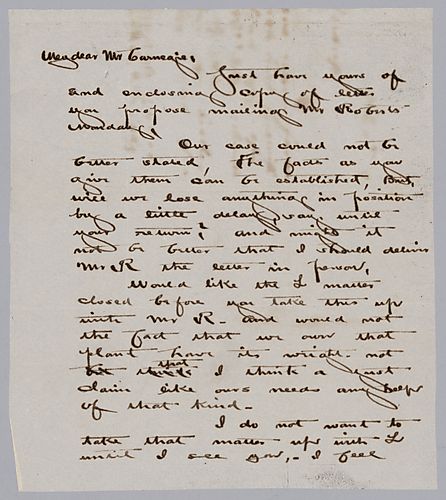 My dear Mr Carnegie,
Just have yours of
and enclosing copy of letter
you propose mailing Mr Roberts
Monday,
Our case could not be
better stated, The facts as you
give them can be established, But,
will we lose anything in position
by a little delay, say, until
your return? and might it
not be better that I should deliver
Mr R the letter in person,
Would like the L matter
closed before you take this up
with Mr R - and would not
the fact that we own that
plant have its wright not
that
I think a just
claim like ours needs any help
of that kind -
I do not want to
take that matter up with L
until I see you, - I feel